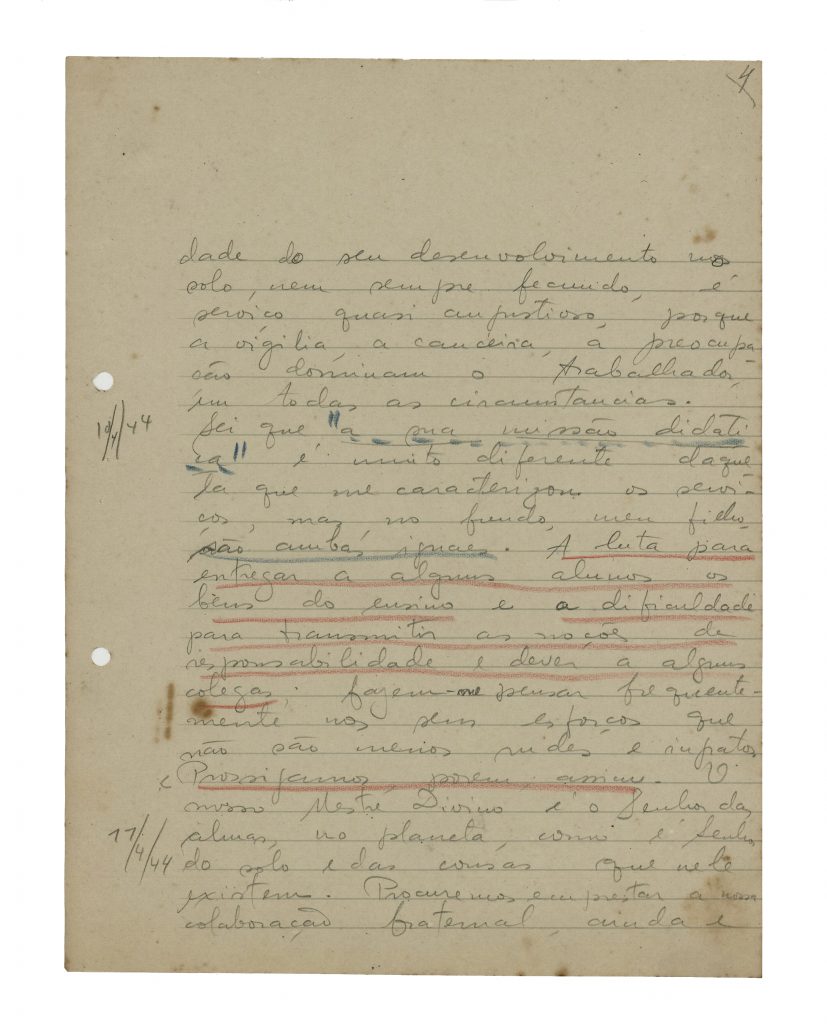 4
dade do seu desenvolvimento no
solo, nem sempre fecundo, é
serviço quasi angustioso, porque
a vigilia, a canceira, a preocupa-
ção dominam o trabalhador,
em todas as circunstancias.
Sei que "a sua missão didati
ca" é muito diferente daque
la que me caracterizou os servi-
ços, mas, no fundo, meu filho,
são ambas iguaes. A luta para
entregar a alguns alunos os
bens do ensino e a dificuldade
para transmitir as noções de
responsabilidade e dever a alguns
colegas, fazem-me pensar frequente-
mente nos seus esforços que
não são menos rudes e ingratos
Prossigamos, porem, assim. O
nosso Mestre Divino é o Senhor das
almas, no planeta, como é Senhor
do solo e das cousas que nele
existem. Procuremos emprestar a nossa
colaboração fraternal, ainda e
10/4/44
11/4/44